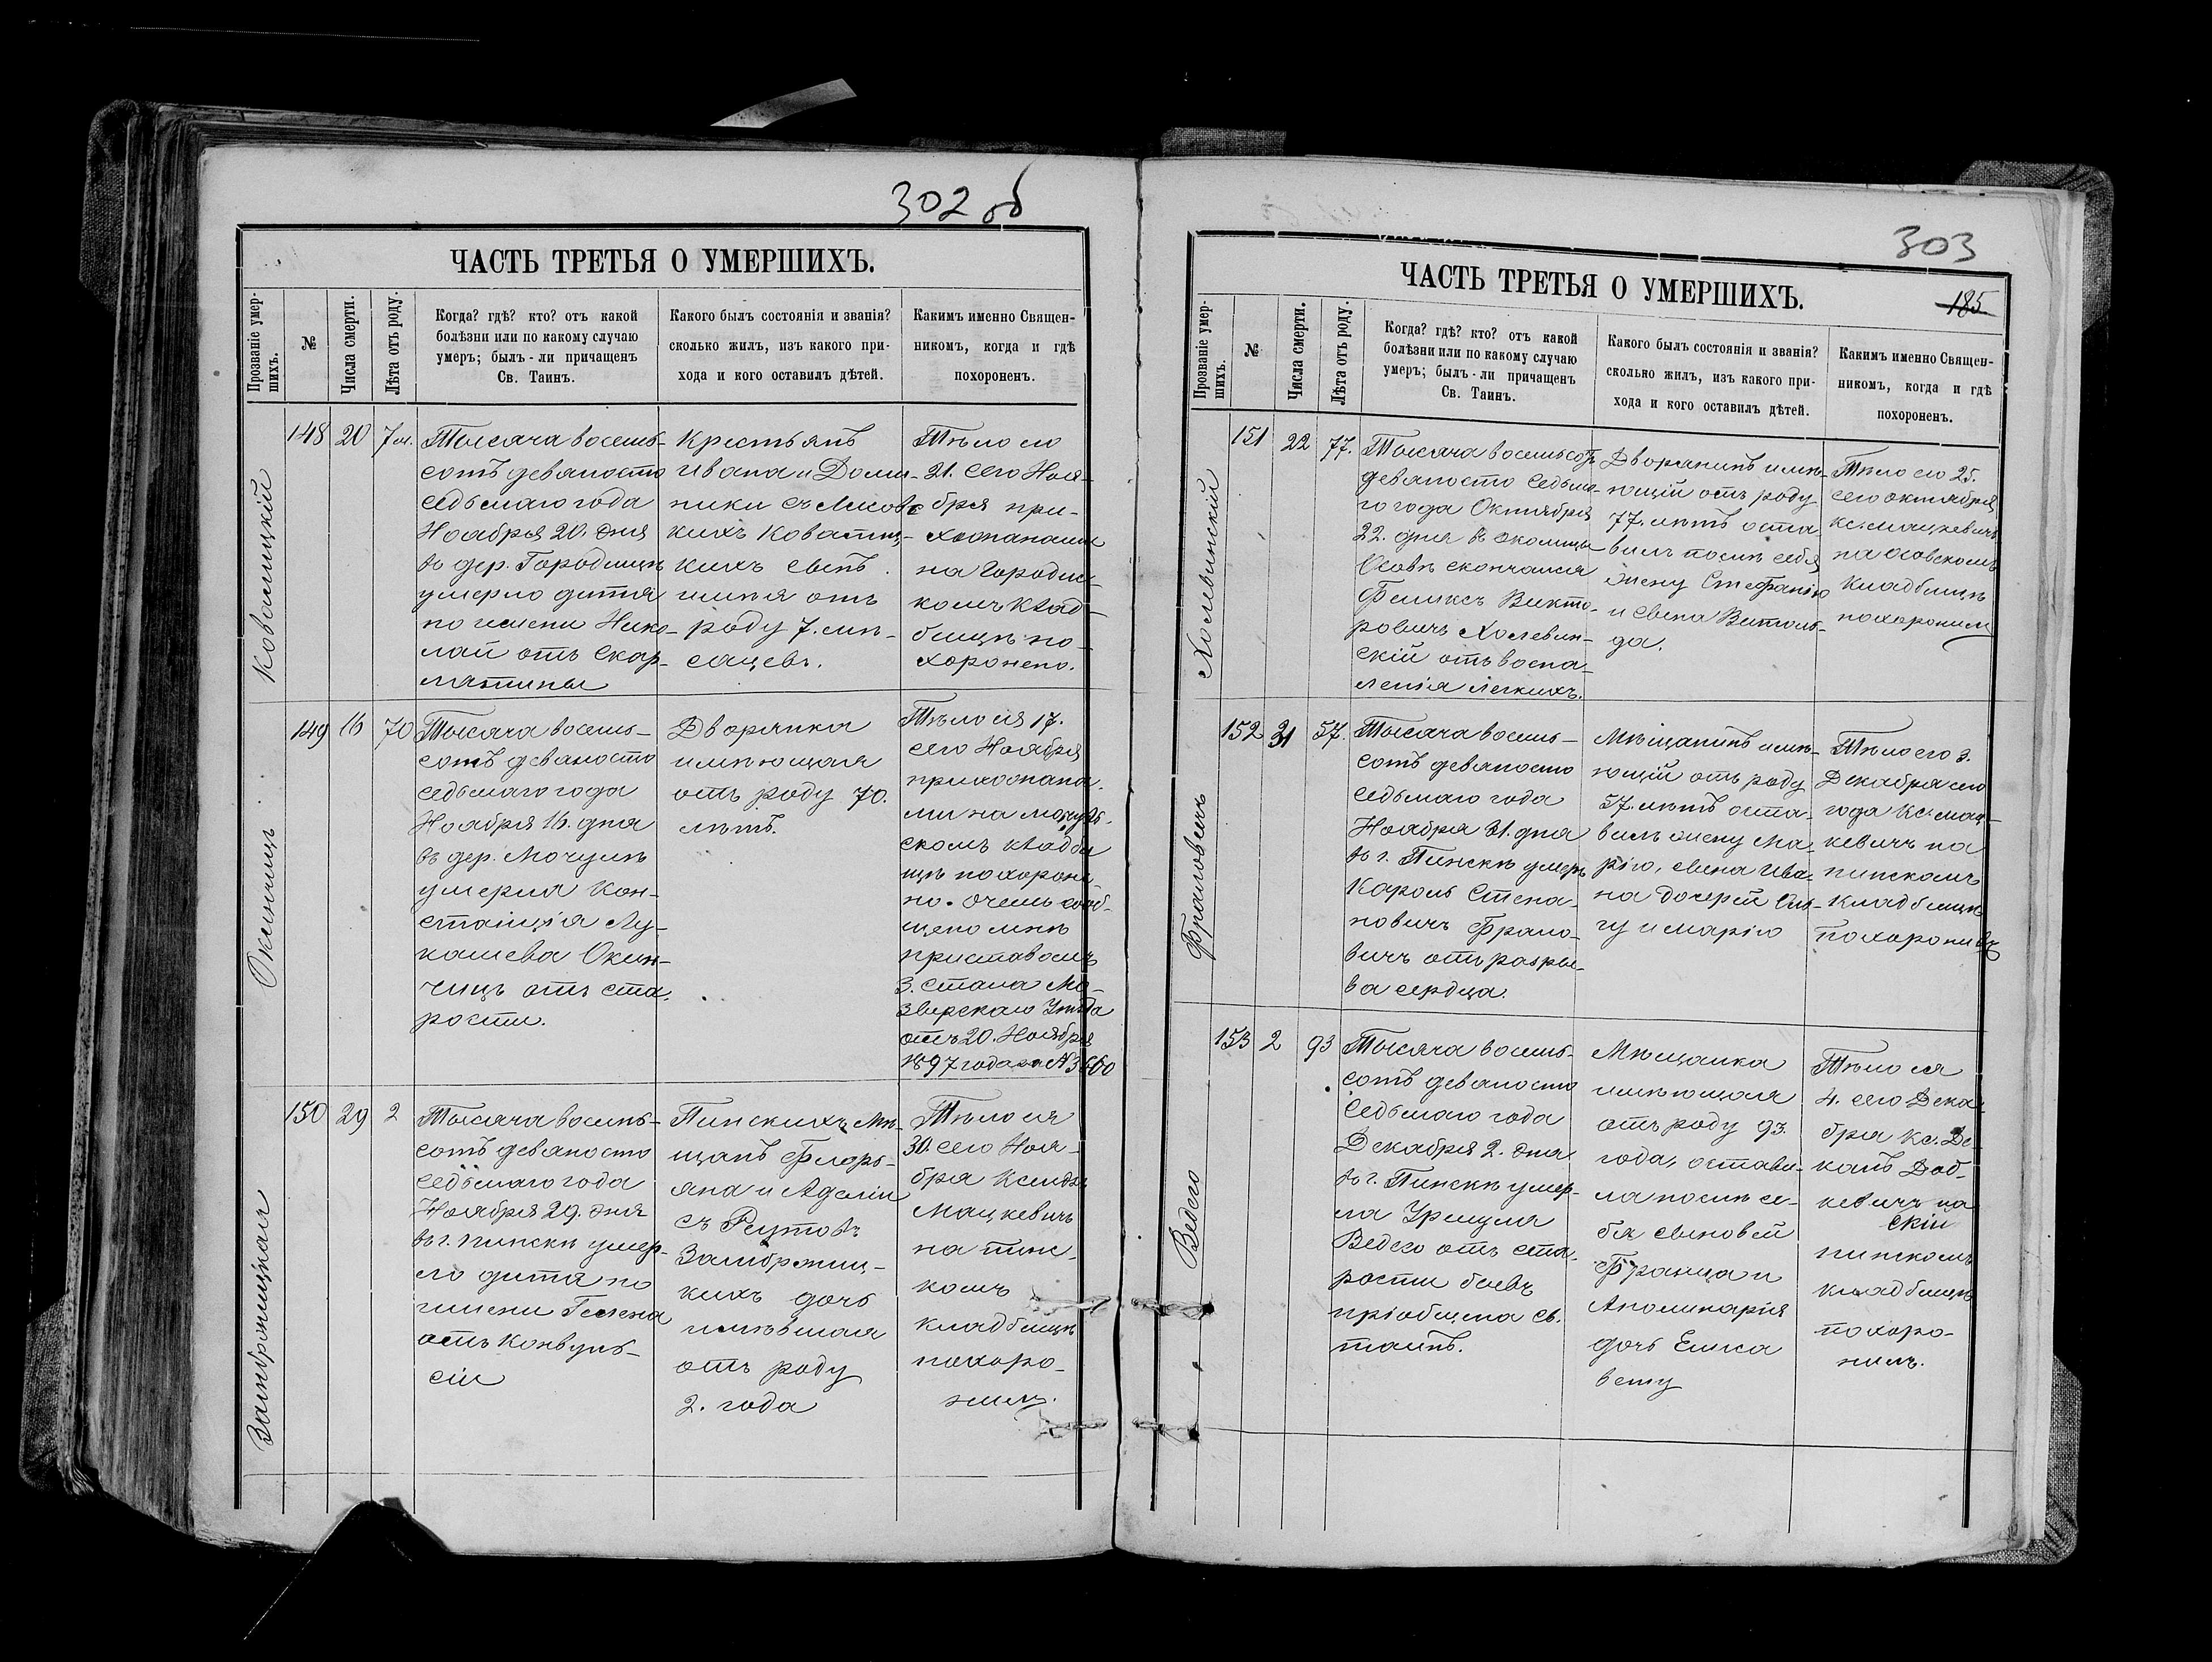 302 об
ЧАСТЬ ТРЕТЬЯ О УМЕРШИХЪ.
Прозваніе умер-
шихъ.
№
Числа смерти.
Лѣта отъ роду.
Когда? гдѣ? кто? отъ какой
болѣзни или по какому случаю
умеръ; былъ-ли причащенъ
Св. Таинъ.
Какого былъ состоянія и званія?
сколько жилъ, изъ какого при-
хода и кого оставилъ дѣтей.
Какимъ именно Священ-
никомъ, когда и гдѣ
похороненъ.
148 20 7м.
Тысяча восемь-
сотъ девяносто
седьмаго года
Ноября 20. дня
въ дер. Городищѣ
умерло дитя
по имени Нико-
лай отъ скар-
лятины
Крестьянъ
Ивана и Доми-
ники съ
кихъ
сынъ
имѣя отъ
роду 7. мѣ-
сяцевъ.
Тѣло его
21. сего Ноя-
бря при-
хожанами
на Городис-
комъ клад-
бищѣ по-
хоронено.
Окинчицъ
149 16 70
Тысяча восемь-
сотъ девяносто
седьмаго года
Ноября 16. дня
въ дер. Мочулѣ
умерла Кон-
станція Лу-
кашева Окин-
чицъ отъ ста-
рости.
Дворянка
имѣющая
отъ роду 70.
лѣтъ.
Тѣло ея 17.
сего Ноября
прихожана-
ми на мочуль-
скомъ кладби
щѣ похороне
но. О чемъ сооб-
щено мнѣ
приставомъ
3. стана Мо-
зырскаго Уѣзда
отъ 20. Ноября
1897 года за №3660
150 29 2
Тысяча восемь-
сотъ девяносто
седьмаго года
Ноября 29. дня
въ г. Пинскѣ умер-
ло дитя по
имени Гелена
отъ конвуль-
сіи
Пинскихъ мѣ-
щанъ Флорь-
яна и Аделіи
съ Реутовъ
Замброжиц-
кихъ дочь
имѣвшая
отъ роду
2. года
Тѣло ея
30. сего Ноя-
бря Ксендзъ
Мацкевичъ
на пинс-
комъ
кладбищѣ
похоро-
нилъ.
Замброжицкая
303
185
ЧАСТЬ ТРЕТЬЯ О УМЕРШИХЪ.
Прозваніе умер-
шихъ.
№
Числа смерти.
Лѣта отъ роду.
Когда? гдѣ? кто? отъ какой
болѣзни или по какому случаю
умеръ; былъ-ли причащенъ
Св. Таинъ.
Какого былъ состоянія и званія?
сколько жилъ, изъ какого при-
хода и кого оставилъ дѣтей.
Какимъ именно Священ-
никомъ, когда и гдѣ
похороненъ.
Холевинскій
151 22 77.
Тысяча восемьсотъ
девяносто седьма-
го года Октября
22. дня в околицѣ
Осовѣ скончался
Феликсъ Викто-
ровичъ Холевин-
скій отъ воспа-
ленія легкихъ.
Дворянинъ имѣ-
ющій отъ роду
77. лѣтъ оста-
вилъ послѣ себя
жену Стефанію
и сына Витоль-
да.
Тѣло его 25.
сего октября
кс. Мацкевичъ
на осовскомъ
кладбищѣ
похоронилъ
152 31 57.
Тысяча восемь-
сотъ девяносто
седьмаго года
Ноября 31. дня
въ г. Пинскѣ умеръ
Кароль Степа-
новичъ Фрамо-
вичъ отъ разры-
ва сердца.
Мѣщанинъ имѣ-
ющій отъ роду
57. лѣтъ оста-
вилъ жену Ма-
рію, сына Ива-
на дочерей
гу и Марію
Тѣло его 3.
Декабря сего
года Кс. Мац-
кевичъ на
пинскомъ
кладбищѣ
похоронилъ
Фрамовичъ
153 2 93
Тысяча восемь-
сотъ девяносто
седьмаго года
Декабря 2. дня
въ г. Пинскѣ умер-
ла Уршуля
Ведего отъ ста-
рости бывъ
пріобщена св.
таинъ.
Мѣщанка
имѣющая
отъ роду 93.
года, остави-
ла послѣ се-
бя сыновей
Франца и
Аполинарія
дочь Елиса
вету
Тѣло ея
4. сего Дека-
бря Кс. Де-
канъ
кевичъ на
пинскомъ
кладбищѣ
похоро-
нилъ.
Ведего